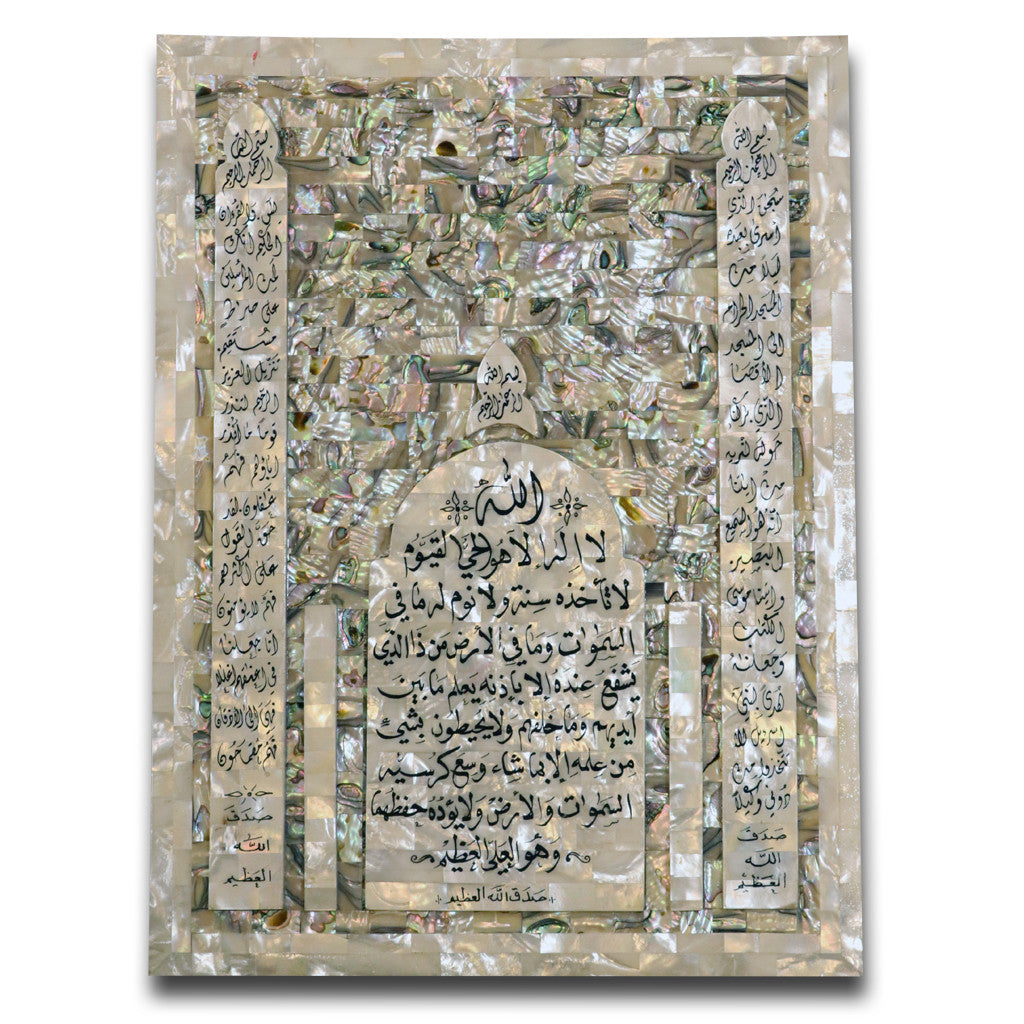 بسم الله
الرحمن الرحيم
سبحن الذي
أسرى بعبده
ليلاً من
المسجد الحرام
الى المسجد
الأقصا
الذي بركنا
حوله لنريه
من ايتنا
انه هو السميع
البصير
و اتينا موسى
الكتب
وجعلنه
هدى لبني
اسرءيل الا
تتخذوا من
دوني وكيلا
صدق
الله
العظيم
بسم الله
الرحمن الرحيم
الله
لا إله إلا هو الحي القيوم
لا تأخذه سنة ولا نوم له ما في
السموات وما في الأرض من ذا الذي
يشفع عنده إلا بإذنه يعلم ما بين
أيديهم وما خلفهم ولا يحيطون بشيءٍ
من علمه إلا بما شاء وسع كرسيه
السموات والأرض ولا يؤده حفظهما
وهو العلي العظيم
صدق الله العظيم
بسم الله
الرحمن الرحيم
يس والقرءان
الحكيم انك
لمن المرسلين
على صرط
مستقيم
تنزيل العزيز
الرحيم لتنذر
قوماً ما أنذر
اباؤهم فهم
غفلون لقد
حق القول
على أكثرهم
فهم لا يؤمنون
انا جعلنا
في اعنقهم اغللا
فهي الى الأذقان
فهم مقمحون
صدق
الله
العظيم